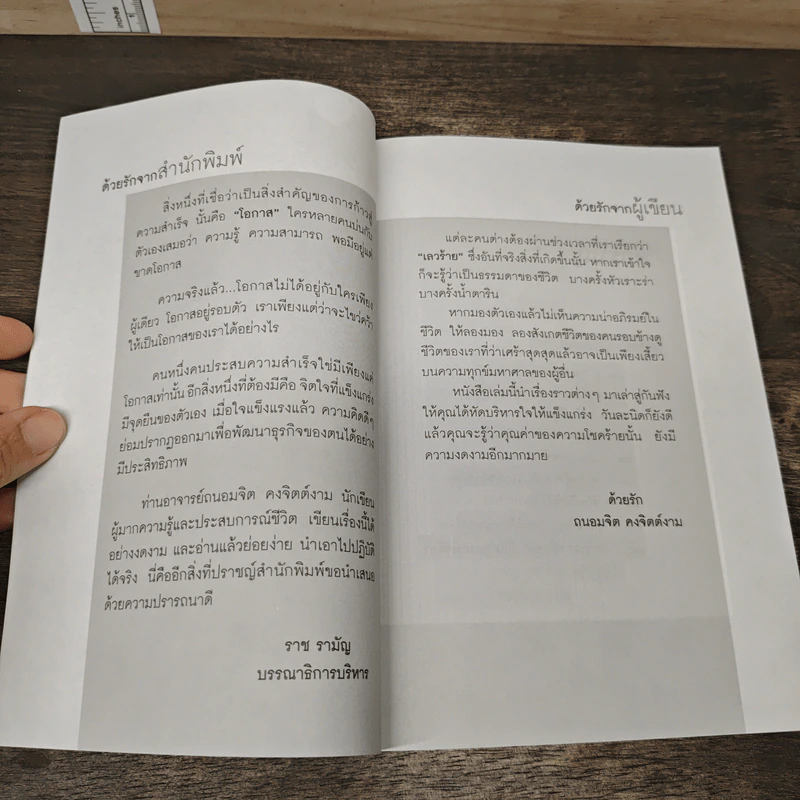 inches
1
ด้วยรักจากสำนักพิมพ์
สิ่งหนึ่งที่เชื่อว่าเป็นสิ่งสำคัญของการก้าวสู่
ความสำเร็จ นั้นคือ “โอกาส” ใครหลายคนบ่นกับ
ตัวเองเสมอว่า ความรู้ ความสามารถ พอมีอยู่แต่
ขาดโอกาส
ความจริงแล้ว...โอกาสไม่ได้อยู่กับใครเพียง
ผู้เดียว โอกาสอยู่รอบตัว เราเพียงแต่ว่าจะไขว่คว้า
ให้เป็นโอกาสของเราได้อย่างไร
คนหนึ่งคนประสบความสำเร็จใช่มีเพียงแค่
โอกาสเท่านั้น อีกสิ่งหนึ่งที่ต้องมีคือ จิตใจที่แข็งแกร่ง
มีจุดยืนของตัวเอง เมื่อใจแข็งแรงแล้ว ความคิดดีๆ
ย่อมปรากฏออกมาเพื่อพัฒนาธุรกิจของตนได้อย่าง
มีประสิทธิภาพ
ท่านอาจารย์ถนอมจิต คงจิตต์งาม นักเขียน
ผู้มากความรู้และประสบการณ์ชีวิต เขียนเรื่องนี้ได้
อย่างงดงาม และอ่านแล้วย่อยง่าย นำเอาไปปฏิบัติ
ได้จริง นี่คืออีกสิ่งที่ปราชญ์สำนักพิมพ์ขอนำเสนอ
ด้วยความปรารถนาดี
ราช รามัญ
บรรณาธิการบริหาร
ด้วยรักจากผู้เขียน
แต่ละคนต่างต้องผ่านช่วงเวลาที่เราเรียกว่า
“เลวร้าย” ซึ่งอันที่จริงสิ่งที่เกิดขึ้นนั้น หากเราเข้าใจ
ก็จะรู้ว่าเป็นธรรมดาของชีวิต บางครั้งหัวเราะร่า
บางครั้งน้ำตาริน
หากมองตัวเองแล้วไม่เห็นความน่าอภิรมย์ใน
ชีวิต ให้ลองมอง ลองสังเกตชีวิตของคนรอบข้างดู
ชีวิตของเราที่ว่าเศร้าสุดสุดแล้วอาจเป็นเพียงเสี้ยว
บนความทุกข์มหาศาลของผู้อื่น
หนังสือเล่มนี้นำเรื่องราวต่างๆ มาเล่าสู่กันฟัง
ให้คุณได้หัดบริหารใจให้แข็งแกร่ง วันละนิดก็ยังดี
แล้วคุณจะรู้ว่าคุณค่าของความโชคร้ายนั้น ยังมี
ความงดงามอีกมากมาย
ด้วยรัก
ถนอมจิต คงจิตต์งาม